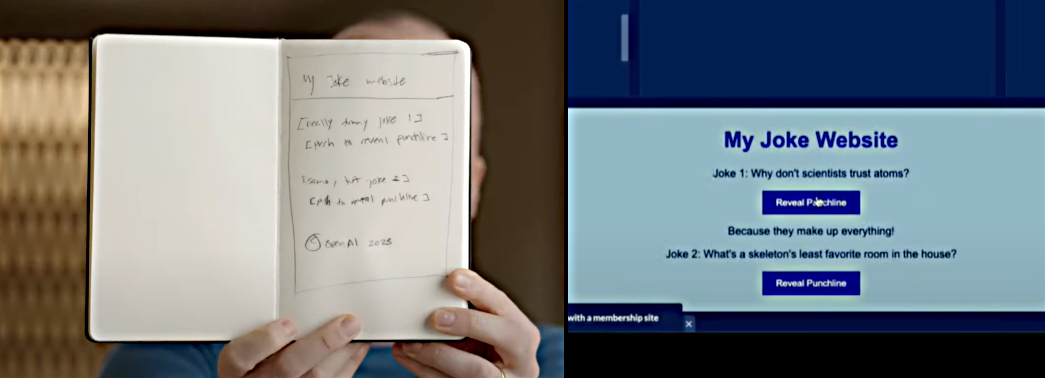 My Joke Website
[really funny joke 1]
[push to reveal punchline]
[same, but joke 2]
[push to reveal punchline]
© OpenAI 2023
My Joke Website
Joke 1: Why don't scientists trust atoms?
Reveal Punchline
Because they make up everything!
Joke 2: What's a skeleton's least favorite room in the house?
Reveal Punchline
with a membership site